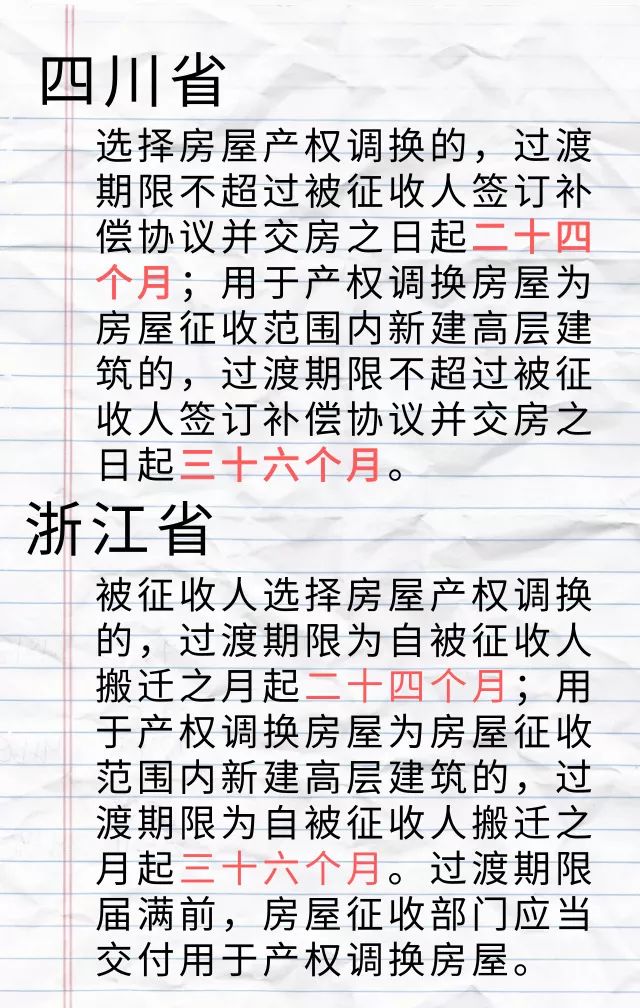 四川省
选择房屋产权调换的，过渡
期限不超过被征收人签订补
偿协议并交房之日起二十四
个月；用于产权调换房屋为
房屋征收范围内新建高层建
筑的，过渡期限不超过被征
收人签订补偿协议并交房之
日起三十六个月。
浙江省
被征收人选择房屋产权调换
的，过渡期限为自被征收人
搬迁之月起二十四个月；用
于产权调换房屋为房屋征收
范围内新建高层建筑的，过
渡期限为自被征收人搬迁之
月起三十六个月。过渡期限
届满前，房屋征收部门应当
交付用于产权调换房屋。